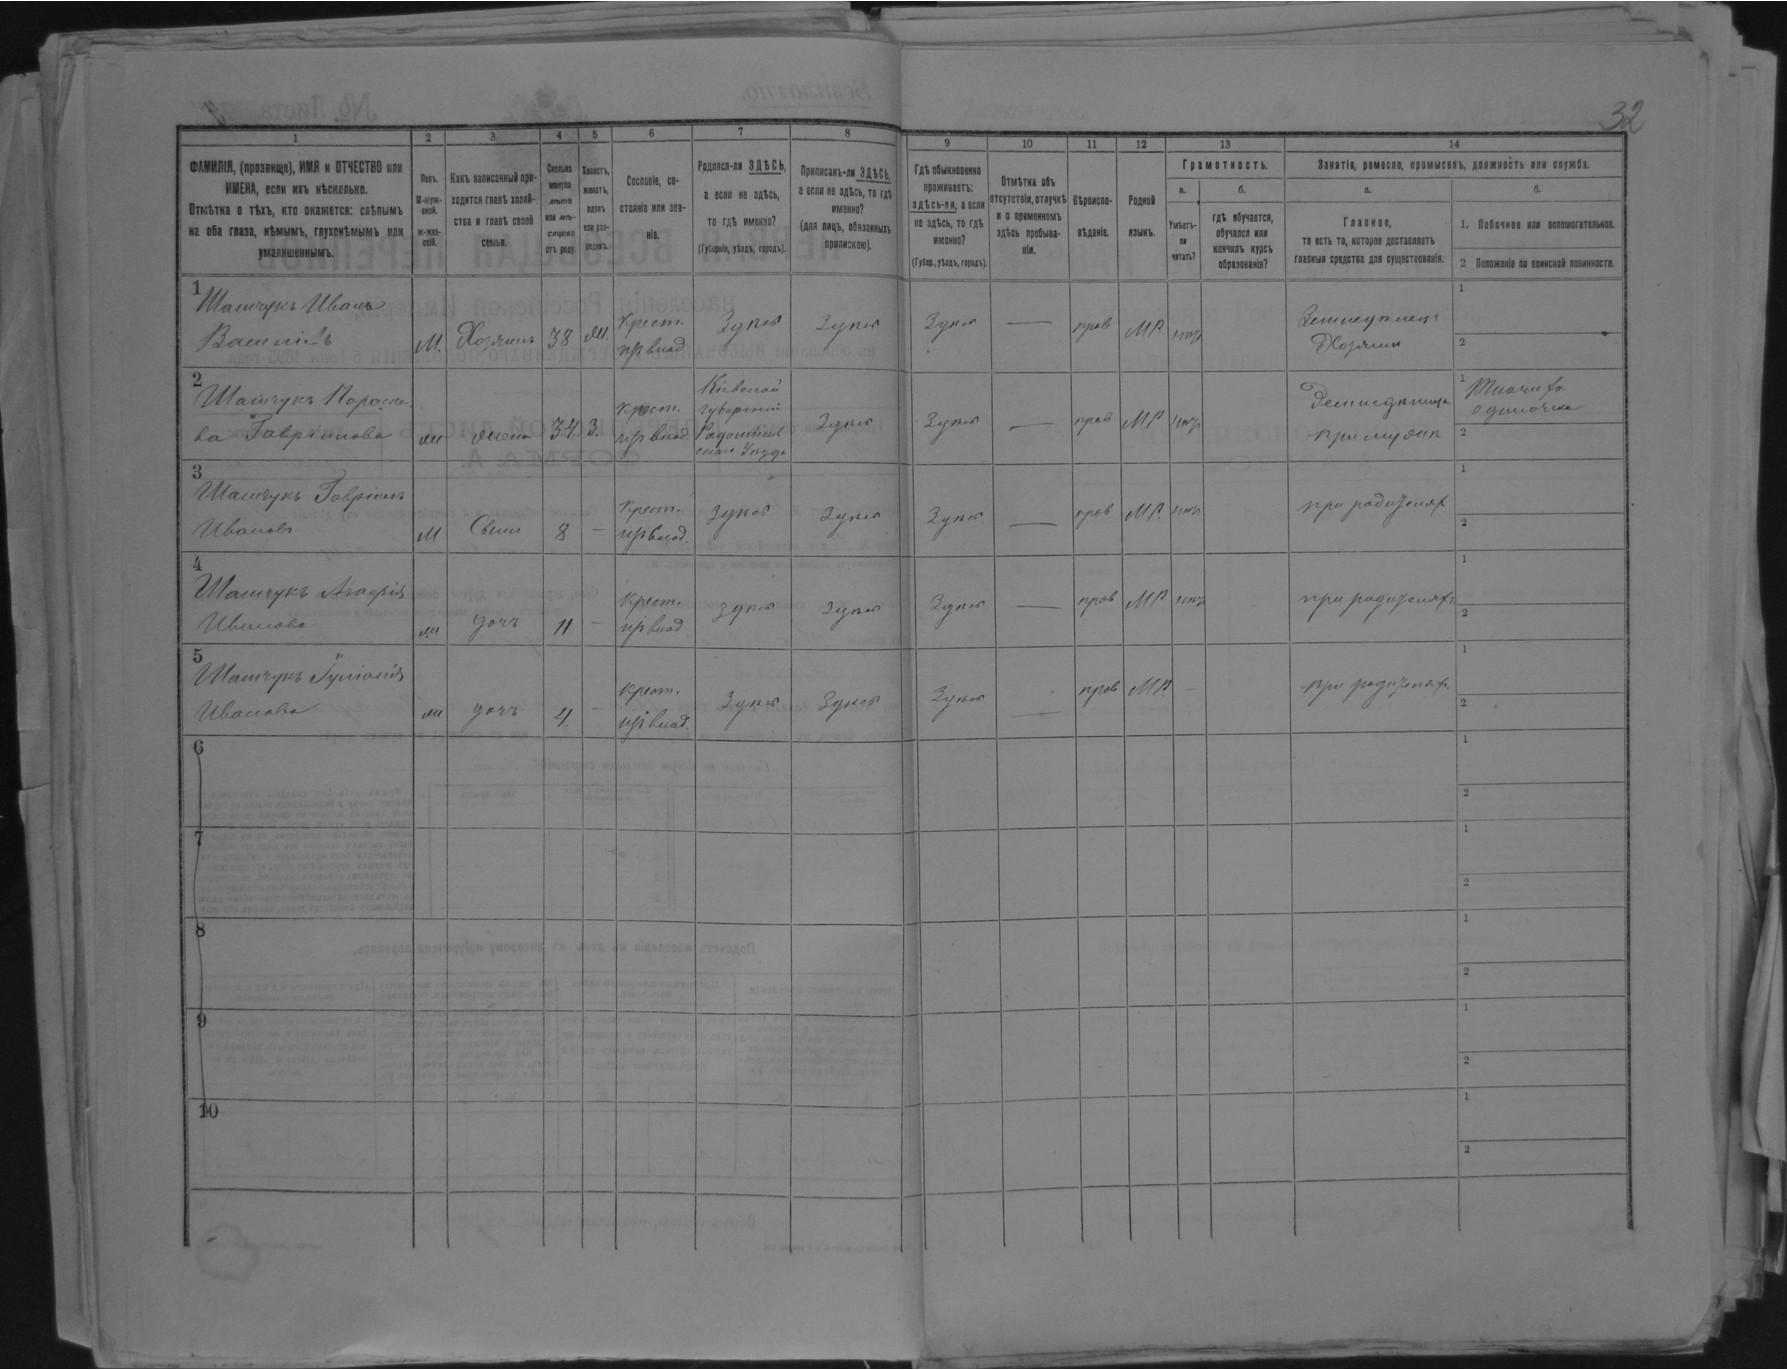 32
1
2
3
4
5
6
7
8
9
10
11
12
13
14
ФАМИЛІЯ, (прозвище), ИМЯ и ОТЧЕСТВО или
ИМЕНА, если ихъ нѣсколько.
Отмѣтка о тѣхъ, кто окажется: слѣпымъ
на оба глаза, нѣмымъ, глухонѣмымъ или
умалишеннымъ.
Полъ.
М-муж-
ской.
ж-жен-
скій.
Какъ записанный при-
ходится главѣ хозяй-
ства и главѣ своей
семьи.
Сколько
минуло
лѣтъ
или мѣ-
сяцевъ
отъ роду.
Холостъ,
женатъ,
вдовъ
или раз-
веденъ.
Сословіе, со-
стояніе или зва-
ніе.
Родился-ли ЗДѢСЬ,
а если не здѣсь,
то гдѣ именно?
(Губернія, уѣздъ, городъ).
Приписанъ-ли ЗДѢСЬ,
а если не здѣсь, то гдѣ
именно?
(для лицъ, обязанныхъ
припискою).
Гдѣ обыкновенно
проживаетъ:
здѣсь-ли, а если
не здѣсь, то гдѣ
именно?
(Губер., уѣздъ, городъ).
Отмѣтка объ
отсутствіи, отлучкѣ
и о временномъ
здѣсь пребыва-
ніи.
Вѣроиспо-
вѣданіе.
Родной
языкъ.
Грамотность.
а.
Умѣетъ-
ли
читать?
б.
гдѣ обучается,
обучался или
кончилъ курсъ
образованія?
Занятіе, ремесло, промыселъ, должность или служба.
а.
Главное,
то есть то, которое доставляетъ
главныя средства для существованія.
б.
1. Побочное или вспомогательное.
2 Положеніе по воинской повинности.
1
Шамчукъ Иванъ
М. Хозяинъ 38 Ж. Крест. Здѣсь Здѣсь Здѣсь — прав МР нѣтъ
Хозяинъ
1
2
2
Шамчукъ Параске
ва Гавріилова
ж жена 34 З. крест.
Кіевской
губерніи
Радомысль
Здѣсь Здѣсь — прав МР нѣтъ
при мужѣ
1
одиночка
2
3
Шамчукъ Гавріилъ
Ивановъ
М Сынъ 8 — Крест. здѣсь Здѣсь Здѣсь — прав МР. нѣтъ
при родителях
1
2
4
Шамчукъ Агафія
Иванова
ж дочь 11 — Крест. здѣсь Здѣсь Здѣсь — прав МР нѣтъ
при родителях
1
2
5
Шамчукъ
Иванова
ж дочь 4 — крест. Здѣсь Здѣсь Здѣсь — прав МР. —
при родителях
1
2
6
1
2
7
1
2
8
1
2
9
1
2
10
1
2